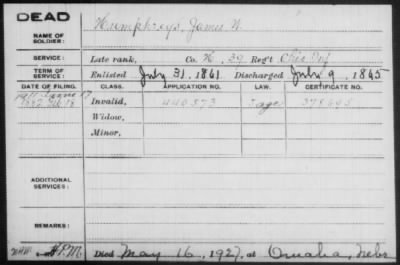 DEAD
NAME OF SOLDIER:
Humphreys, James W.
SERVICE:
Late rank, Co. K, 39 Reg't Ohio Inf
TERM OF SERVICE:
Enlisted July 31, 1861. Discharged July 9, 1865
DATE OF FILING. CLASS. APPLICATION NO. LAW. CERTIFICATE NO.
1882
Invalid, 440573
Widow,
Minor,
ADDITIONAL SERVICES:
REMARKS:
Died May 16, 1927, at Omaha, Nebr